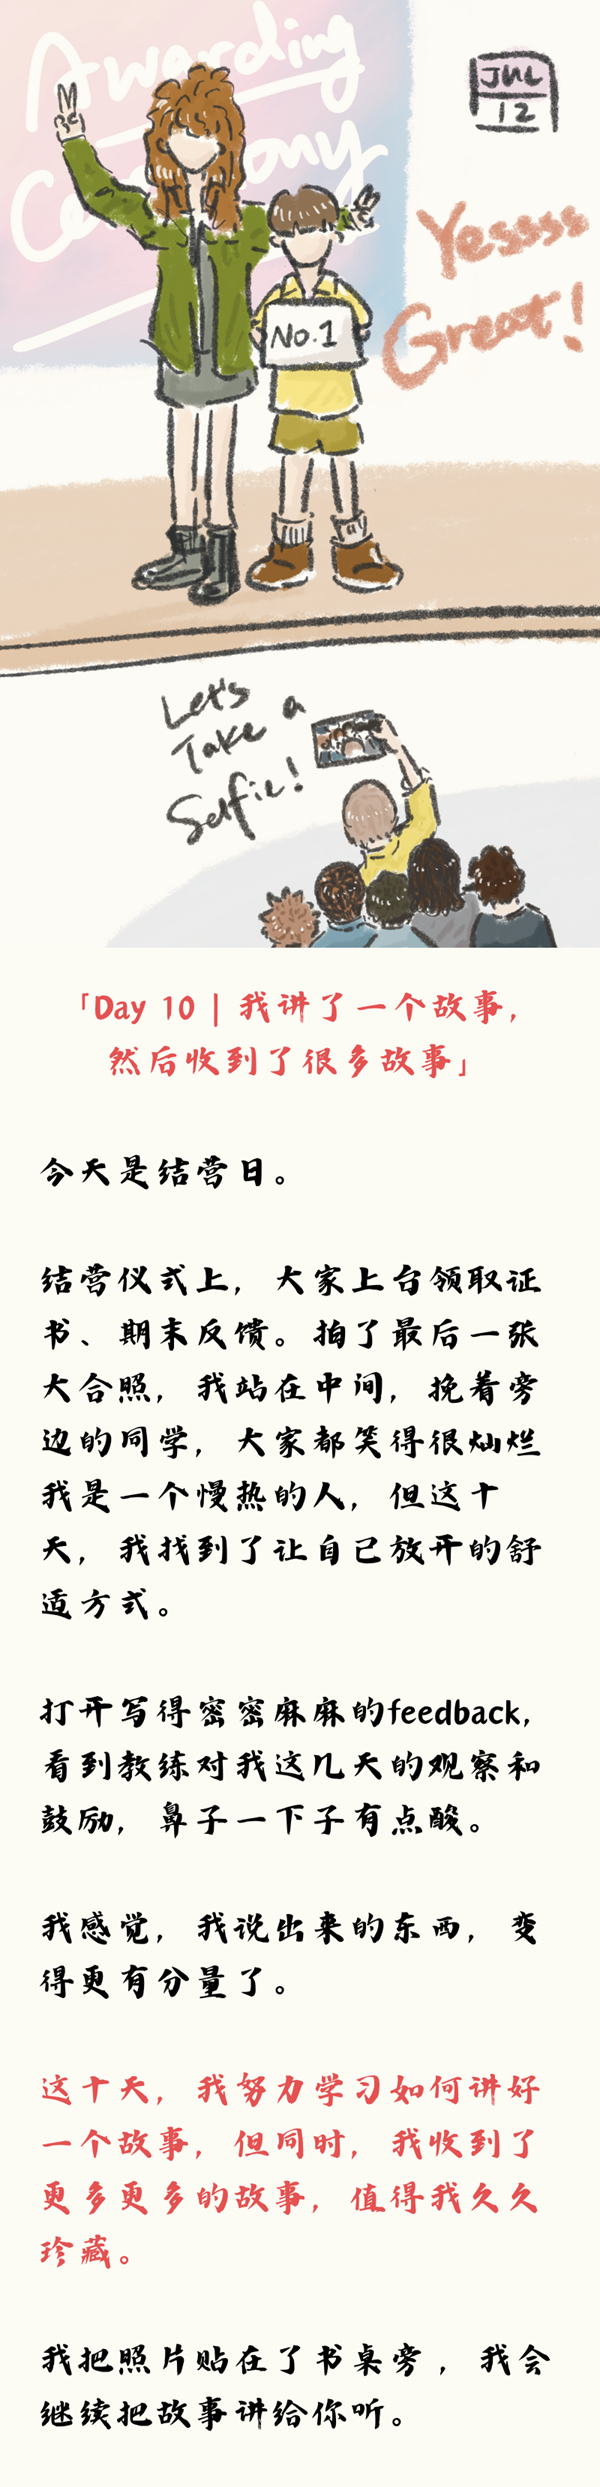 Awarding
Ceremony
JUL
12
Yessss
Great!
No.1
Let's
Take a
Selfie!
「Day 10 | 我讲了一个故事，
然后收到了很多故事」
今天是结营日。
结营仪式上，大家上台领取证
书、期末反馈。拍了最后一张
大合照，我站在中间，挽着旁
边的同学，大家都笑得很灿烂
我是一个慢热的人，但这十
天，我找到了让自己放开的舒
适方式。
打开写得密密麻麻的feedback，
看到教练对我这几天的观察和
鼓励，鼻子一下子有点酸。
我感觉，我说出来的东西，变
得更有分量了。
这十天，我努力学习如何讲好
一个故事，但同时，我收到了
更多更多的故事，值得我久久
珍藏。
我把照片贴在了书桌旁，我会
继续把故事讲给你听。